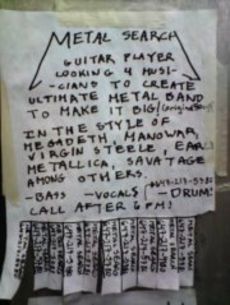 METAL SEARCH
GUITAR PLAYER
LOOKING 4 MUSI-
-CIANS TO CREATE
ULTIMATE METAL BAND
TO MAKE IT BIG/(original songs)
IN THE STYLE OF
MEGADETH, MANOWAR,
VIRGIN STEELE, EARLY
METALLICA, SAVATAGE
AMONG OTHERS.
-BASS -VOCALS -DRUM!
CALL AFTER 6PM!
METAL SEARCH